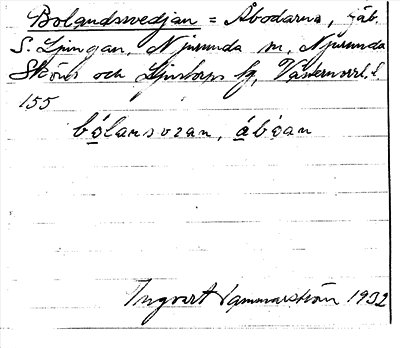 Bolandsvedjan = Åbodarna, säb.
S. Ljungan, Njurunda sn, Njurunda
Sköns och Ljustorps tg, Västernorrl. l.
155
bólansvɛan, ábóan
Ingvert Hammarström 1932